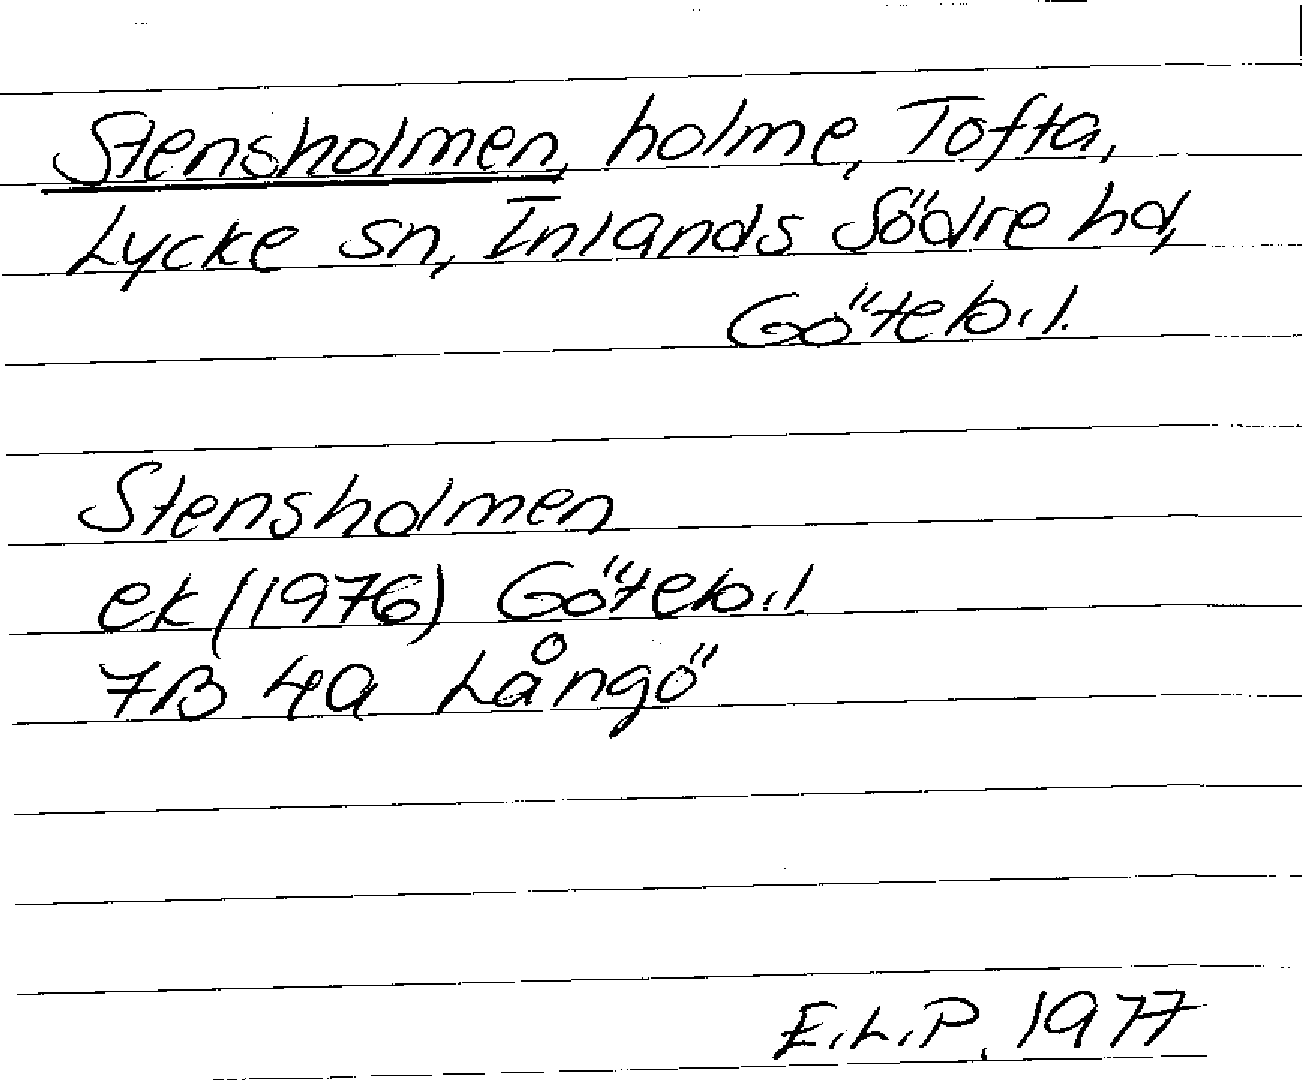 Stensholmen, holme, Tofta,
Lycke sn, Inlands Södre hd,
Göteb.l.
Stensholmen
ek (1976) Göteb.l
7B 4a Långö
E.L.P. 1977